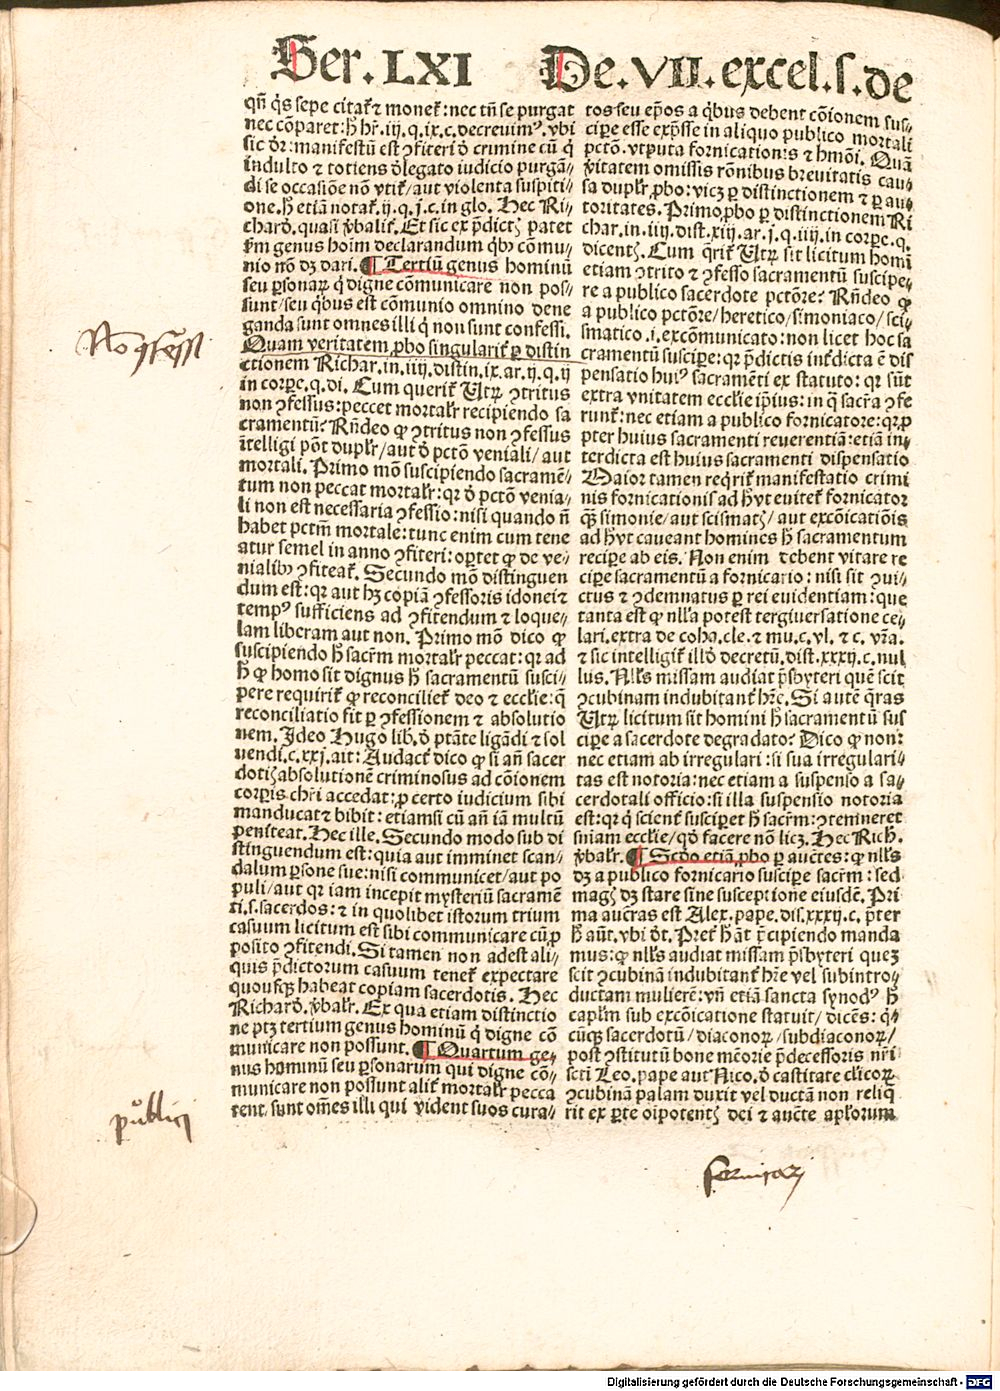 Ser. LXI De. VII. excel. s. de
qñ q̇s sepe citat̃ ⁊ monet̃: nec tñ se purgat
nec cõparet: h̃ hr̃. iij. q. ix. c. decreuimꝰ. vbi
sic dr̃: manifestũ est ꝯfiteri d̕ crimine cũ q̇
indulto ⁊ totiens d̕legato iudicio purgã⸗
di se occasiõe nõ vtit̃/ aut violenta suspiti⸗
one. h̃ etiã notat̃. ij. q. j. c. in glo. Hec Ri⸗
chard̕. quasi v̕balit̃. Et sic ex p̃dictꝭ patet
ẜm genus hoĩm declarandum qͥbꝰ cõmu⸗
nio nõ dꝫ dari. ¶ Tertiũ genus hominũ
seu ꝑsonaꝝ q̇ digne cõmunicare non pos⸗
sunt/ seu qͥbus est cõmunio omnino dene
ganda sunt omnes illi q̇ non sunt confessi.
Quam veritatem ꝓbo singularit̃ ꝑ distin
ctionem Richar. in. iiij. distin. ix. ar. ij. q. ij
in corpe. q. di. Cum querit̃ Vtꝝ ꝯtritus
non ꝯfessus: peccet mortalr̃ recipiendo sa
cramentũ? Rñdeo ꝙ ꝯtritus non ꝯfessus
ĩtelligi põt duplr̃/ aut d̕ pctõ veniali/ aut
mortali. Primo mõ suscipiendo sacramẽ⸗
tum non peccat mortalr̃: qꝛ d̕ pctõ venia⸗
li non est necessaria ꝯfessio: nisi quando ñ
habet pctm̃ mortale: tunc enim cum tene
atur semel in anno ꝯfiteri: oportet ꝙ de ve⸗
nialibꝰ ꝯfiteat̃. Secundo mõ distinguen
dum est: qꝛ aut hꝫ copiã ꝯfessoris idonei ⁊
tempꝰ sufficiens ad ꝯfitendum ⁊ loque⸗
lam liberam aut non. Primo mõ dico ꝙ
suscipiendo h̃ sacrm̃ mortalr̃ peccat: qꝛ ad
h̃ ꝙ homo sit dignus h̃ sacramentũ susci⸗
pere requirit̃ ꝙ reconciliet̃ deo ⁊ ecclie: q̃
reconciliatio fit ꝑ ꝯfessionem ⁊ absolutio
nem. Ideo Hugo lib. d̕ ptãte ligãdi ⁊ sol
vendi. c. xxj. ait: Audact̃ dico ꝙ si añ sacer
dotꝭ absolutionẽ criminosus ad cõionem
corꝑis chr̃i accedat: ꝓ certo iudicium sibi
manducat ⁊ bibit: etiamsi cũ añ iã multũ
peniteat. Hec ille. Secundo modo sub di
stinguendum est: quia aut imminet scan⸗
dalum ꝑsone sue: nisi communicet/ aut po
puli/ aut qꝛ iam incepit mysteriũ sacramẽ
ti. s. sacerdos: ⁊ in quolibet istorum trium
casuum licitum est sibi communicare cũ ꝓ
posito ꝯfitendi. Si tamen non adest ali⸗
quis p̃dictorum casuum tenet̃ expectare
quousqꝫ habeat copiam sacerdotis. Hec
Richard̕. v̕balr̃. Ex qua etiam distinctio
ne ptꝫ tertium genus hominũ q̇ digne cõ
municare non possunt. ¶ Quartum ge⸗
nus hominũ seu ꝑsonarum qui digne cõ⸗
municare non possunt alit̃ mortalr̃ pecca
rent. sunt om̃es illi qui vident suos cura⸗
tos seu ep̃os a qͥbus debent cõionem sus⸗
cipe esse exp̃sse in aliquo publico mortali
pctõ. vtputa fornicationis ⁊ hmõi. Quã
v̕itatem omissis rõnibus breuitatis cau⸗
sa duplr̃ ꝓbo: vicꝫ ꝑ distinctionem ⁊ ꝑ au⸗
toritates. Primo ꝓbo ꝑ distinctionem Ri
char. in. iiij. dist. xiij. ar. j. q. iiij. in corpe. q.
dicentꝭ. Cum q̃rit̃ Vtꝝ sit licitum homĩ
etiam ꝯtrito ⁊ ꝯfesso sacramentũ suscipe⸗
re a publico sacerdote pctõre? Rñdeo ꝙ
a publico pctõre/ heretico/ simoniaco/ sci⸗
smatico .i. excõmunicato: non licet hoc sa
cramentũ suscipe: qꝛ p̃dictis int̃dicta ẽ dis
pensatio huiꝰ sacramẽti ex statuto: qꝛ sũt
extra vnitatem ecclie ip̃ius: in q̃ sacr̃a ꝯfe
runt̃: nec etiam a publico fornicatore: qꝛ ꝓ
pter huius sacramenti reuerentiã: etiã in⸗
terdicta est huius sacramenti dispensatio
Maior tamen reqͥrit̃ manifestatio crimi
nis fornicationis ad h̃ vt euitet̃ fornicator
qͣꝫ simonie/ aut scismatꝭ/ aut excõicatiõis
ad h̃ vt caueant homines h̃ sacramentum
recipe ab eis. Non enim debent vitare re
cipe sacramentũ a fornicario: nisi sit ꝯui⸗
ctus ⁊ ꝯdemnatus ꝑ rei euidentiam: que
tanta est ꝙ nll̃a potest tergiuersatione ce⸗
lari. extra de coha. cle. ⁊ mu. c. vl. ⁊ c. vr̃a.
⁊ sic intelligit̃ illd̕ decretũ. dist. xxxij. c. nul
lus. Nll̃s missam audiat p̃sbyteri quẽ scit
ꝯcubinam indubitant̃ hr̃e. Si autẽ q̃ras
Vtꝝ licitum sit homini h̃ sacramentũ sus
cipe a sacerdote degradato? Dico ꝙ non:
nec etiam ab irregulari: si sua irregulari⸗
tas est notoria: nec etiam a suspenso a sa⸗
cerdotali officio: si illa suspensio notoria
est: qꝛ q̇ scient̃ susciperet h̃ sacrm̃: ꝯtemneret
sniam ecclie/ qd̕ facere non licꝫ. Hec Rich.
v̕balr̃. ¶ Scdo etiã ꝓbo ꝑ auctes: ꝙ nll̃s
dꝫ a publico fornicario suscipe sacrm̃: sed
magꝭ dꝫ stare sine susceptione eiusdẽ. Pri
ma auctras est Alex. pape. dis. xxxij. c. p̃ter
h̃ aũt. vbi dt̕. Pret̃ h̃ ãt p̃cipiendo manda
mus: ꝙ nll̃s audiat missam p̃sbyteri quez
scit ꝯcubinã indubitant̃ hr̃e vel subintro⸗
ductam mulierẽ: vñ etiã sancta synodꝰ h̃
caplm̃ sub excõicatione statuit/ dicẽs: q̇⸗
cũqꝫ sacerdotũ/ diaconoꝝ/ subdiaconoꝝ/
post ꝯstitutũ bone mẽorie p̃decessoris nr̃i
scti Leo. pape aut Nico. d̕ castitate clicoꝝ
ꝯcubinã palam duxit vel ductã non reliq̇
rit ex ꝑte oipotentꝭ dei ⁊ aucte aplorum
publici